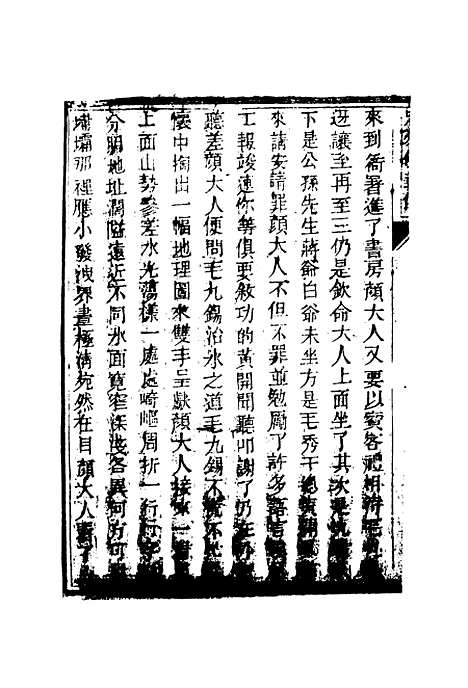 來到衙署進了書房顏大人又要以賓客禮相待毛
遜讓至再至三仍是欽命大人上面坐了其次是
下是公孫先生蔣爺白爺未坐方是毛秀才總黃開
來請安請罪顏大人不但不罪並勉勵了許多
工報竣還你等俱要敘功的黃開聞聽叩謝了仍在外
聽差顏大人便問毛九錫治水之道毛九錫不慌不忙
懷中掏出一幅地理圖來雙手呈獻顏大人接來一看
上面山勢參差水光蕩漾一處處崎嶇周折一行行
分明地址濶隘遠近不同水面寬窄深淺各異何方可
埽壩那裡應小發洩界畫極清宛然在目顏大人看了